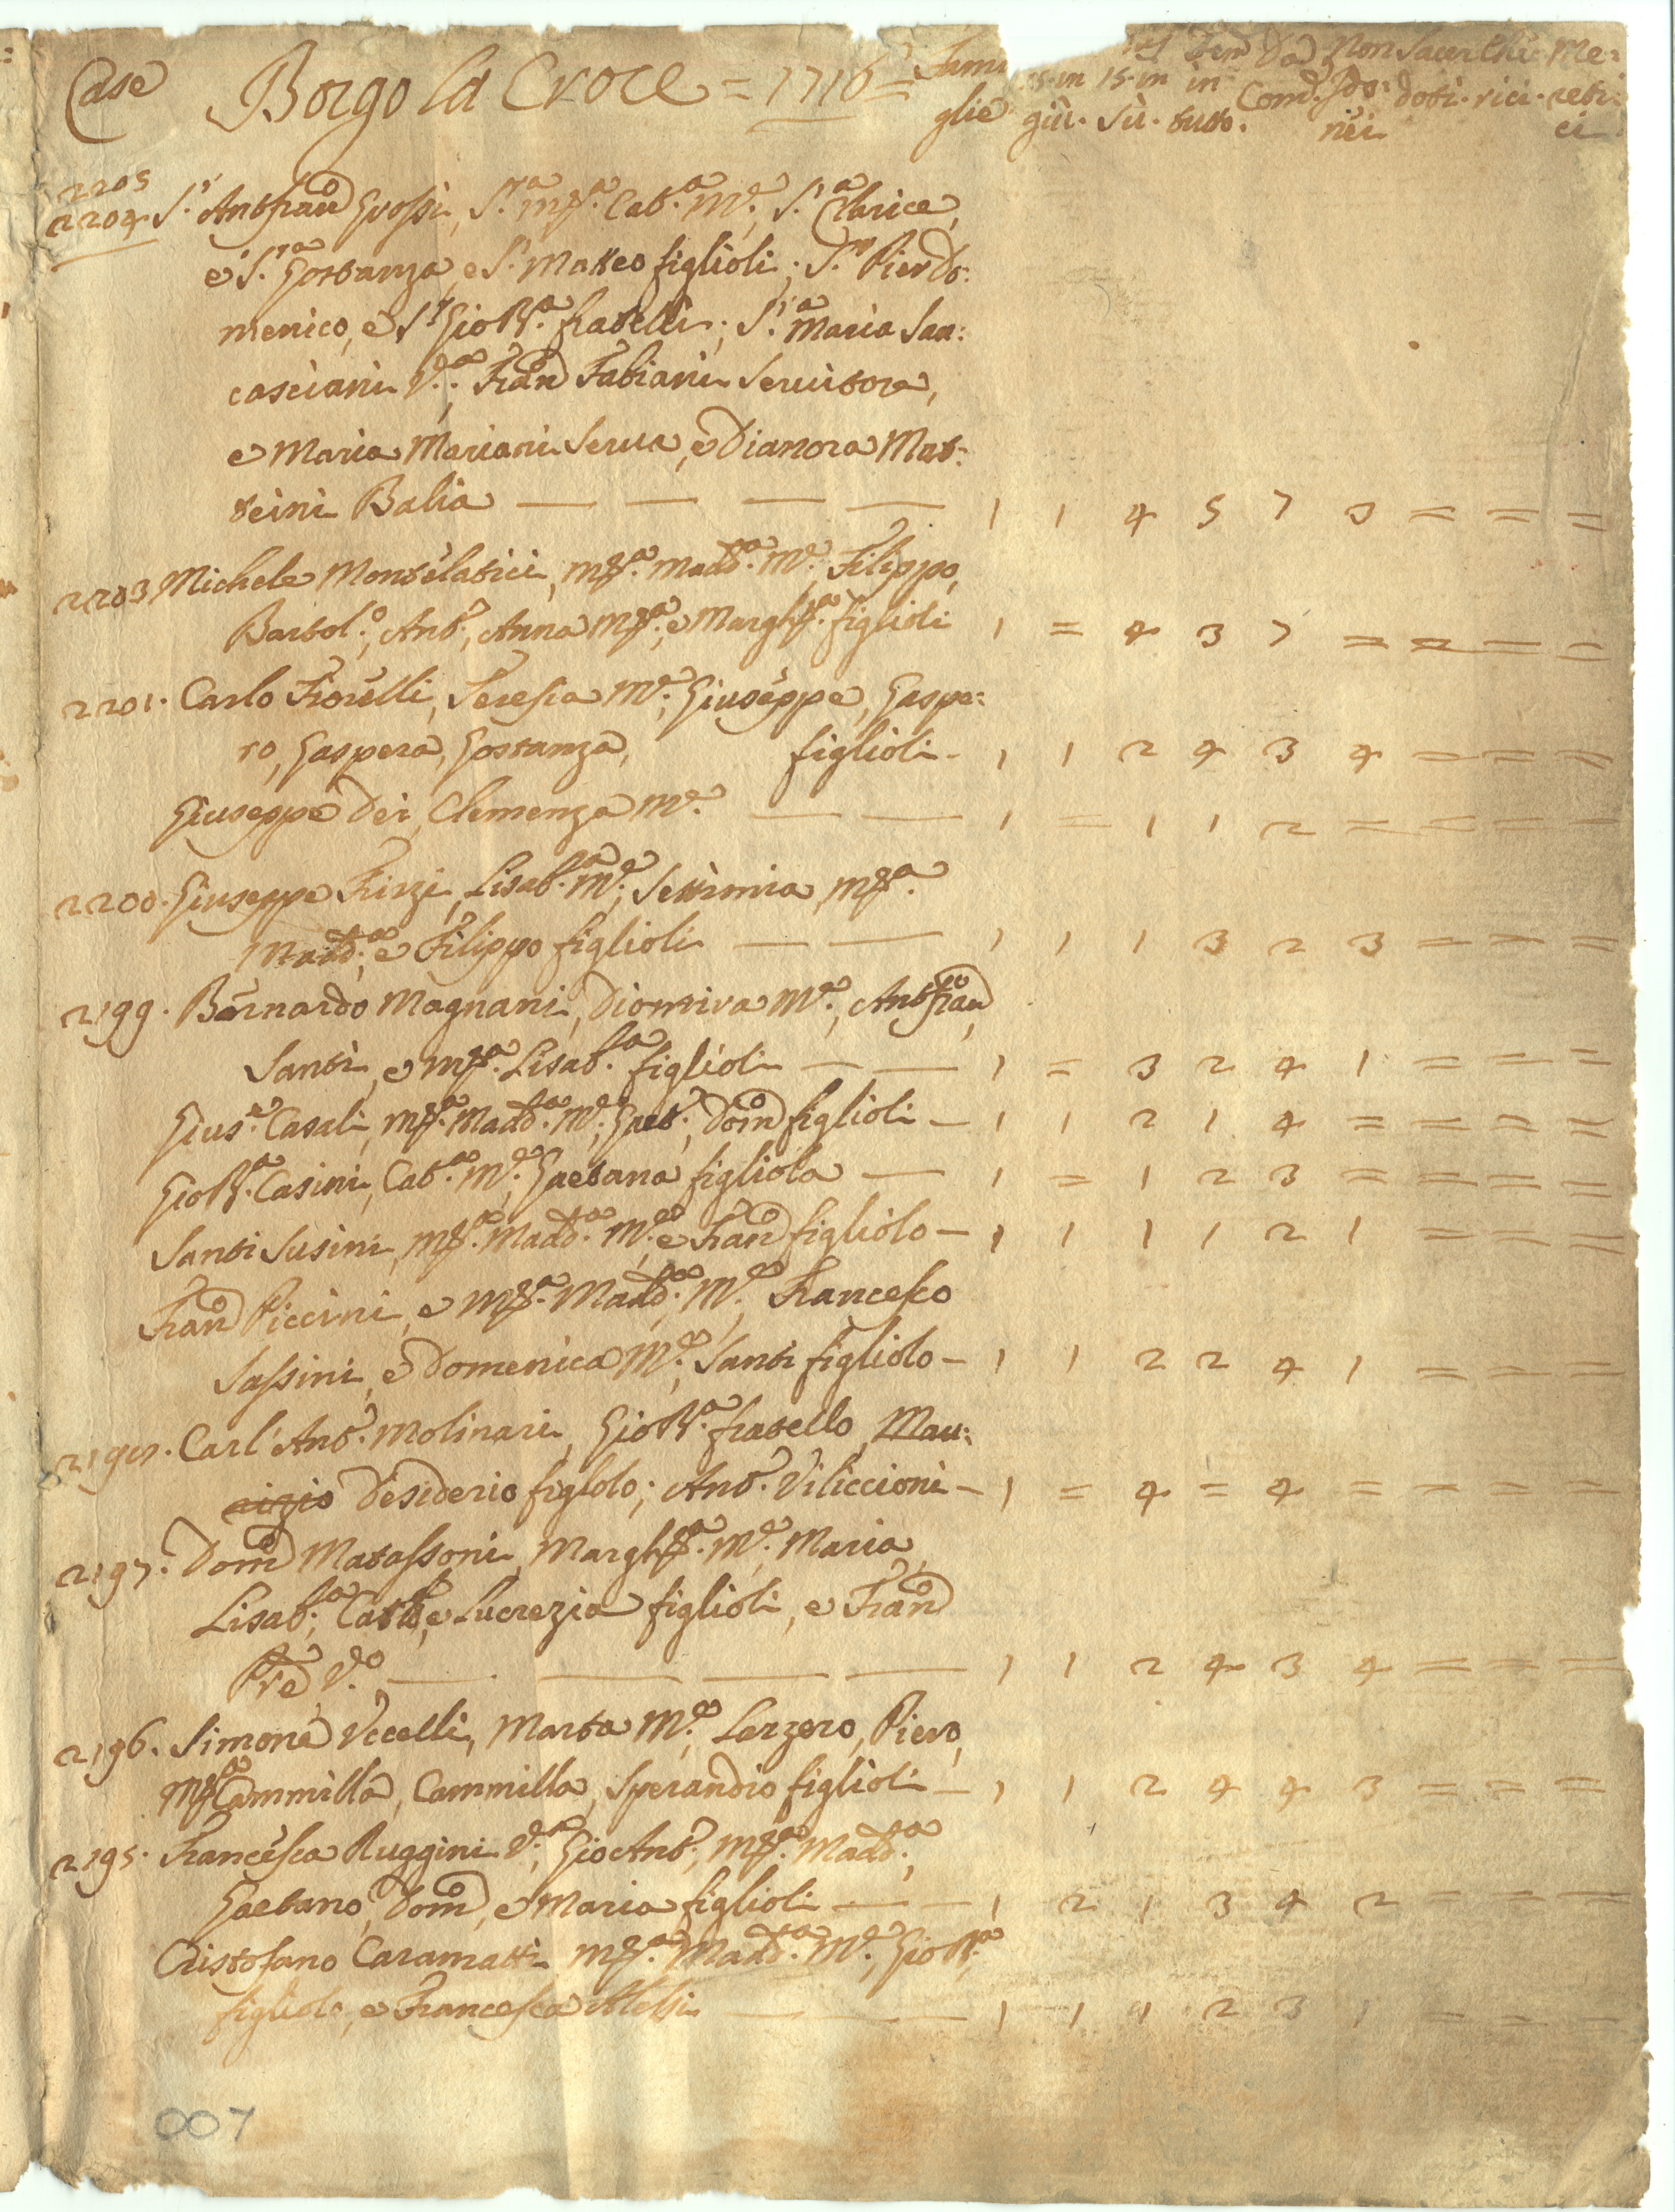 Case Borgo la Croce = 1716 = Fami
glie
15. in 15. in in Com.
giù. sù. tutto.
Da Non Sacer Chie Me:
doti. rici. reti
nei ci
2205
2204 S.r Antfran.o Grossi, S.ra M.a Cat.a M.e, S.ra Clarice,
e S.ra Gostanza, e S.r Matteo figlioli; S.r Pier Do:
menico, e S.r Gio B.a fratelli; S.ra Maria San:
casciani V.a; Fran.o Fabiani Servitore,
e Maria Mariani Serva, e Dianora Mat:
teini Balia — — — — 1 1 4 5 7 3 = = =
2203 Michele Montelatici, M.a Madd.a M.e, Filippo,
Bartol.o, Ant.o, Anna M.a, e Margh.a figlioli 1 = 4 3 7 = = = =
2201. Carlo Fiorelli, Teresia M.e; Giuseppe, Gaspe:
ro, Gaspera, Gostanza, figlioli - 1 1 2 4 3 4 = = =
Giuseppe Dei, Clemenza M.e — — 1 = 1 1 2 = = = =
2200. Giuseppe Firzi, Lisab.a M.e; Settimia, M.a
Madd.a, e Filippo figlioli — — 1 1 1 3 2 3 = = =
2199. Bernardo Magnani, Diomira M.e, Antfran.o,
Santi, e M.a Lisab.a figlioli — — 1 = 3 2 4 1 = = =
Gius.e Casali, M.a Madd.a M.e, Gaet.o, Dom.o figlioli — 1 1 2 1 4 = = = =
Gio B.a Casini, Cat.a M.e, Gaetana figliola — 1 = 1 2 3 = = = =
Santi Susini, M.a Madd.a M.e, e Fran.o figliolo — 1 1 1 1 2 1 = = =
Fran.o Piccini, e M.a Madd.a M.e, Francesco
Sassini, e Domenica M.e, Santi figliolo — 1 1 2 2 4 1 = = =
2198. Carl' Ant.o Molinari, Gio B.a fratello, Mau:
rizio Desiderio figlolo; Ant.o Viliccioni — 1 = 4 = 4 = = = =
2197. Dom.o Matassoni, Margh.a M.e, Maria,
Lisab.a, Catt.a, e Lucrezia figlioli, e Fran.o
Pre V.o — — — — 1 1 2 4 3 4 = = =
2196. Simone Vccelli, Marta M.e, Lazzero, Piero,
M.a Cammilla, Cammilla, Sperandio figlioli — 1 1 2 4 4 3 = = =
2195. Francesca Ruggini V.a, Gio Ant.o, M.a Madd.a,
Gaetano, Dom.o, e Maria figlioli — — 1 2 1 3 4 2 = = =
Cristofano Caramatti M.a Madd.a M.e, Gio B.a
figliolo, e Francesca Alessi — — 1 1 1 2 3 1 = = =
007